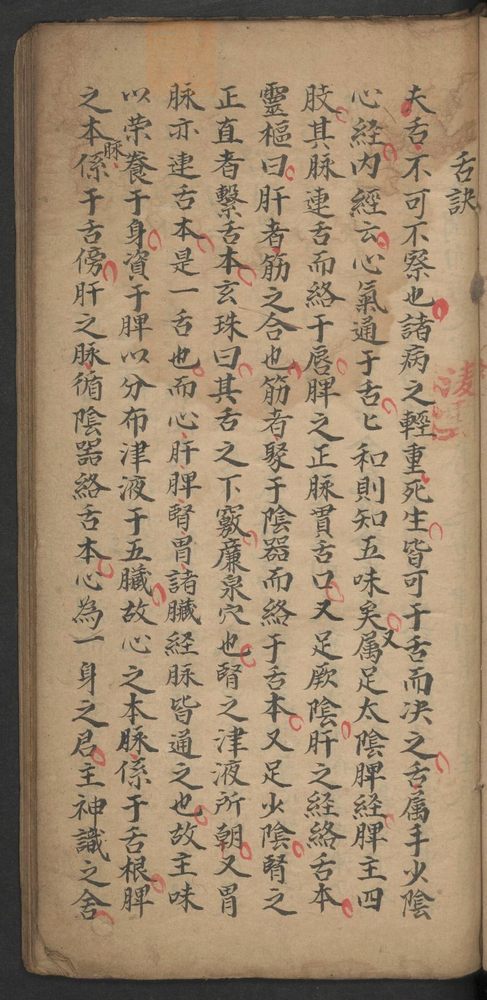 舌訣
夫舌不可不察也諸病之輕重死生皆可于舌而决之舌属手少陰
心経内經云心氣通于舌匕和則知五味矣又属足太陰脾経脾主四
肢其脉連舌而絡于唇脾之正脉貫舌口又足厥陰肝之経絡舌本
靈樞曰肝者筋之合也筋者聚于陰器而絡于舌本又足少陰腎之
正直者繫舌本玄珠曰其舌之下竅廉泉穴也腎之津液所朝又胃
脉亦連舌本是一舌也而心肝脾腎胃諸臟経脉皆通之也故主味
以荣養于身資于脾以分布津液于五臟故心之本脉係于舌根脾
之本脉係于舌傍肝之脉循陰器絡舌本心為一身之君主神識之舍